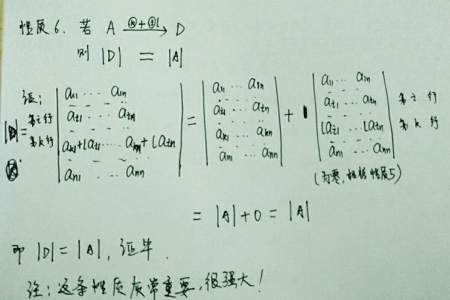 性质6. 若 A —(k)+(i)l→ D
则 |D| = |A|
证:
|D| =
第i行
第k行
a11 ... a1n
ai1 ... ain
ak1+lai1 ... akn+lain
an1 ... ann
=
a11 ... a1n
ai1 ... ain
ak1 ... akn
an1 ... ann
+
a11 ... a1n
ai1 ... ain
lai1 ... lain
an1 ... ann
第i行
第k行
(为零,根据性质5)
= |A|+0 = |A|
即 |D|=|A|, 证毕.
注:这条性质非常重要,很强大!